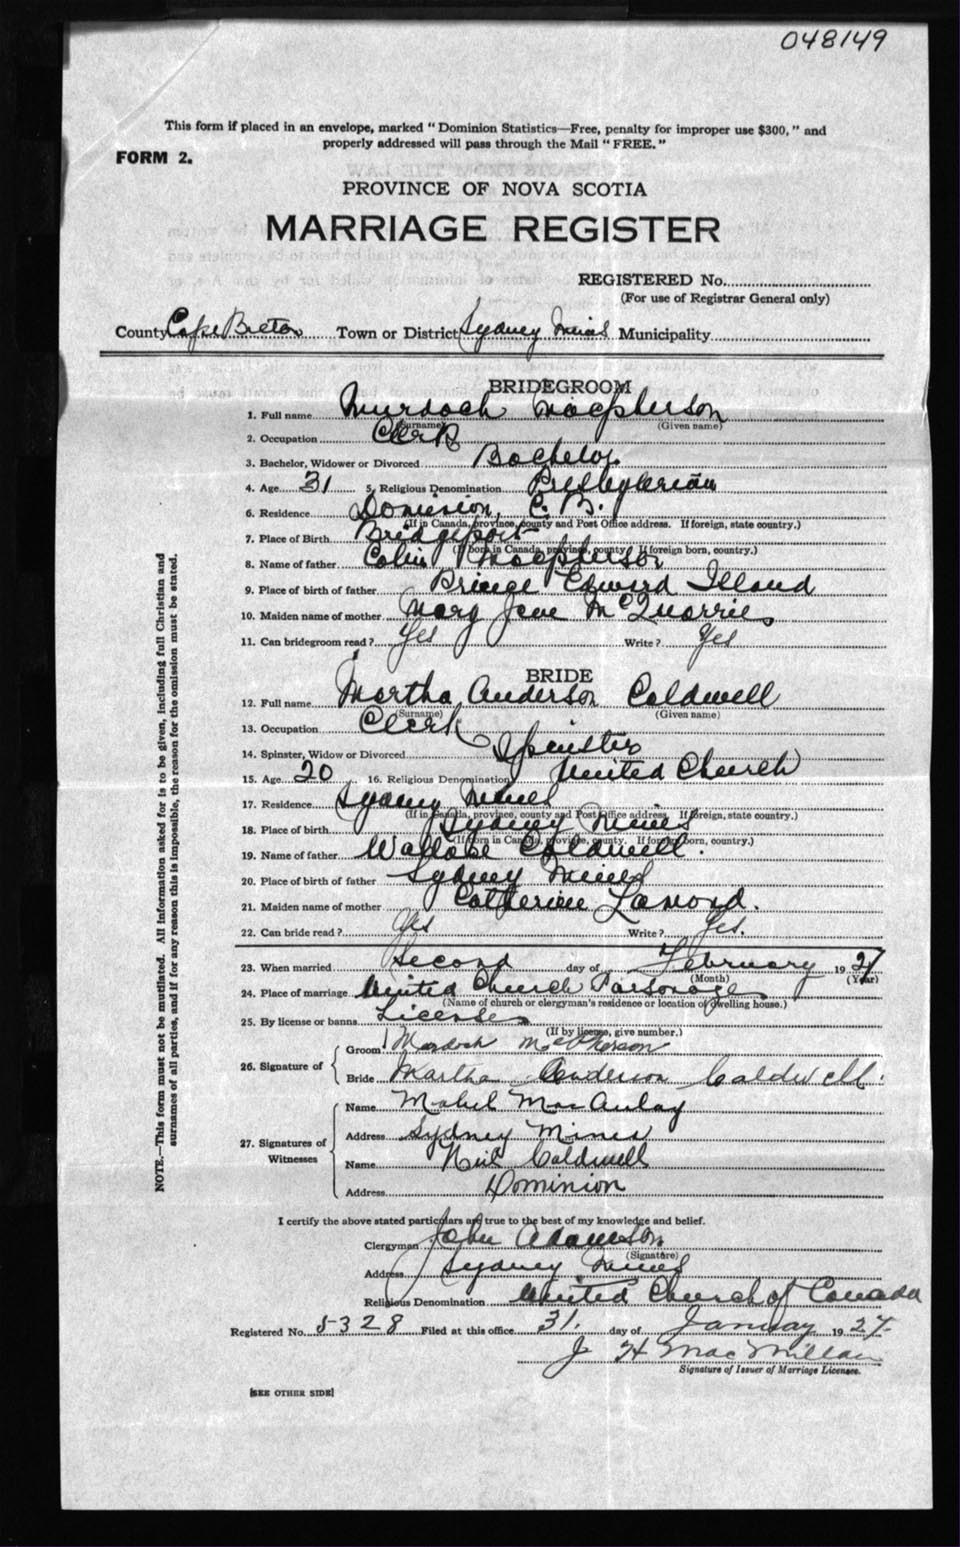 048149
This form if placed in an envelope, marked "Dominion Statistics—Free, penalty for improper use $300," and
properly addressed will pass through the Mail "FREE."
FORM 2.
PROVINCE OF NOVA SCOTIA
MARRIAGE REGISTER
REGISTERED No.
(For use of Registrar General only)
County Cape Breton Town or District Sydney Mines Municipality
BRIDEGROOM
1. Full name Murdoch Macpherson
(Surname) (Given name)
2. Occupation Clerk
3. Bachelor, Widower or Divorced Bachelor
4. Age 31 5. Religious Denomination Presbyterian
6. Residence Dominion, C. B.
(If in Canada, province, county and Post Office address. If foreign, state country.)
7. Place of Birth Bridgeport
(If born in Canada, province, county. If foreign born, country.)
8. Name of father Colin Macpherson
9. Place of birth of father Prince Edward Island
10. Maiden name of mother Mary Jane McQuarrie
11. Can bridegroom read? Yes Write? Yes
BRIDE
12. Full name Martha Anderson Caldwell
(Surname) (Given name)
13. Occupation Clerk
14. Spinster, Widow or Divorced Spinster
15. Age 20 16. Religious Denomination United Church
17. Residence Sydney Mines
(If in Canada, province, county and Post Office address. If foreign, state country.)
18. Place of birth Sydney Mines
(If born in Canada, province, county. If foreign born, country.)
19. Name of father Wallace Caldwell.
20. Place of birth of father Sydney Mines
21. Maiden name of mother Catherine Lamond.
22. Can bride read? Yes Write? Yes.
23. When married Second day of February 1927
(Month) (Year)
24. Place of marriage United Church Parsonage
(Name of church or clergyman's residence or location of dwelling house.)
25. By license or banns License
(If by license, give number.)
26. Signature of
Groom Murdoch McPherson
Bride Martha Anderson Caldwell.
27. Signatures of Witnesses
Name Mabel MacAulay
Address Sydney Mines
Name Neil Caldwell
Address Dominion
I certify the above stated particulars are true to the best of my knowledge and belief.
Clergyman John Adamson
(Signature)
Address Sydney Mines
Religious Denomination United Church of Canada
Registered No. 5328 Filed at this office 31. day of January 1927.
J H MacMillan
Signature of Issuer of Marriage Licenses.
[SEE OTHER SIDE]
NOTE.—This form must not be mutilated. All information asked for is to be given, including full Christian and
surnames of all parties, and if for any reason this is impossible, the reason for the omission must be stated.